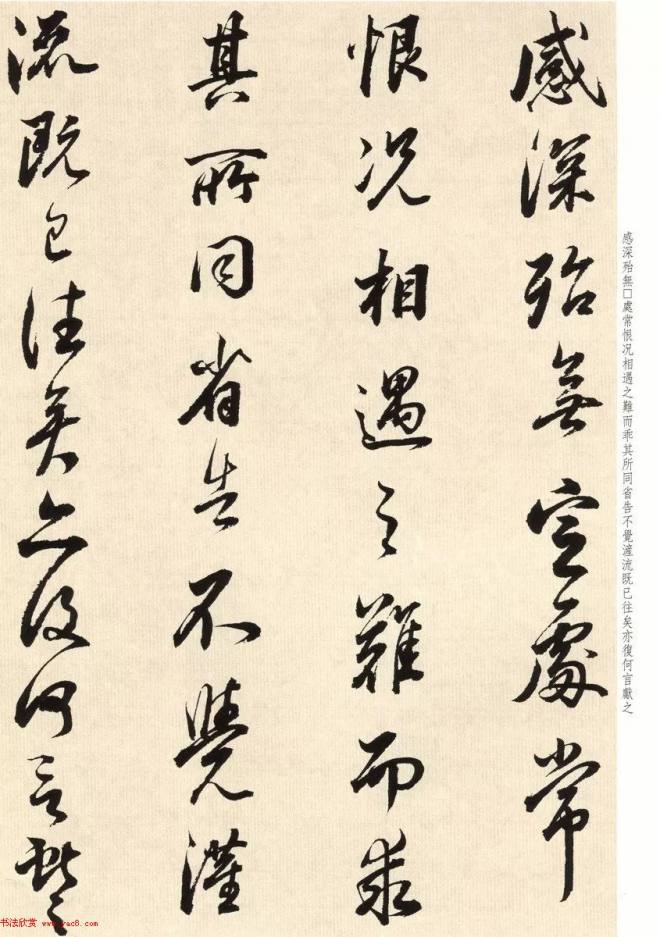 感深殆無空處常
恨況相遇之難而乖
其所同省告不覺灑
流既已往矣亦復何言獻之
感深殆無□處常恨況相遇之難而乖其所同省告不覺灑流既已往矣亦復何言獻之
书法欣赏 www.yac8.com